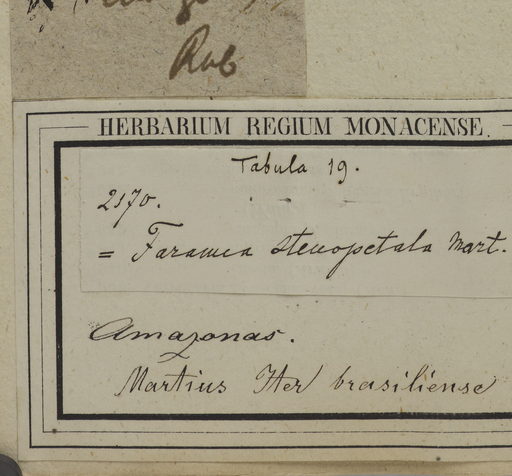 Rub
HERBARIUM REGIUM MONACENSE.
Tabula 19.
2170.
= Faramea stenopetala Mart.
Amazonas.
Martius Iter brasiliense